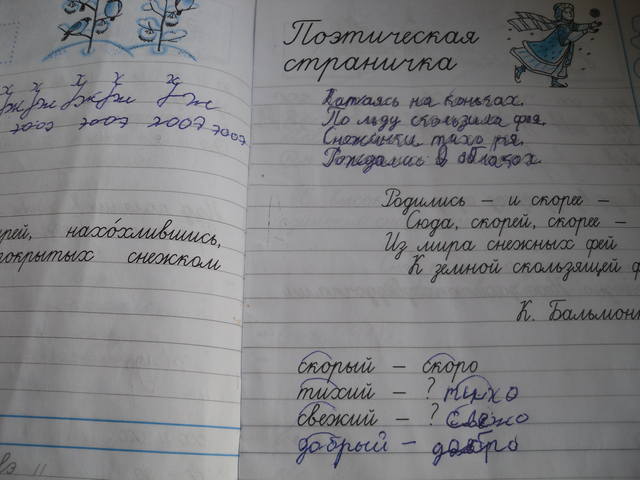 2007 2007 2007 2007
рей, нахо́хлившись,
покрытых снежком
11
Поэтическая
страничка
Катаясь на коньках.
По льду скользила фея.
Снежинки, тихо рея.
Рождались в облаках.
Родились – и скорее –
Сюда, скорей, скорее –
Из мира снежных фей
К земной скользящей ф
К. Бальмон
скорый – скоро
тихий – ? тихо
свежий – ? свежо
добрый – добро